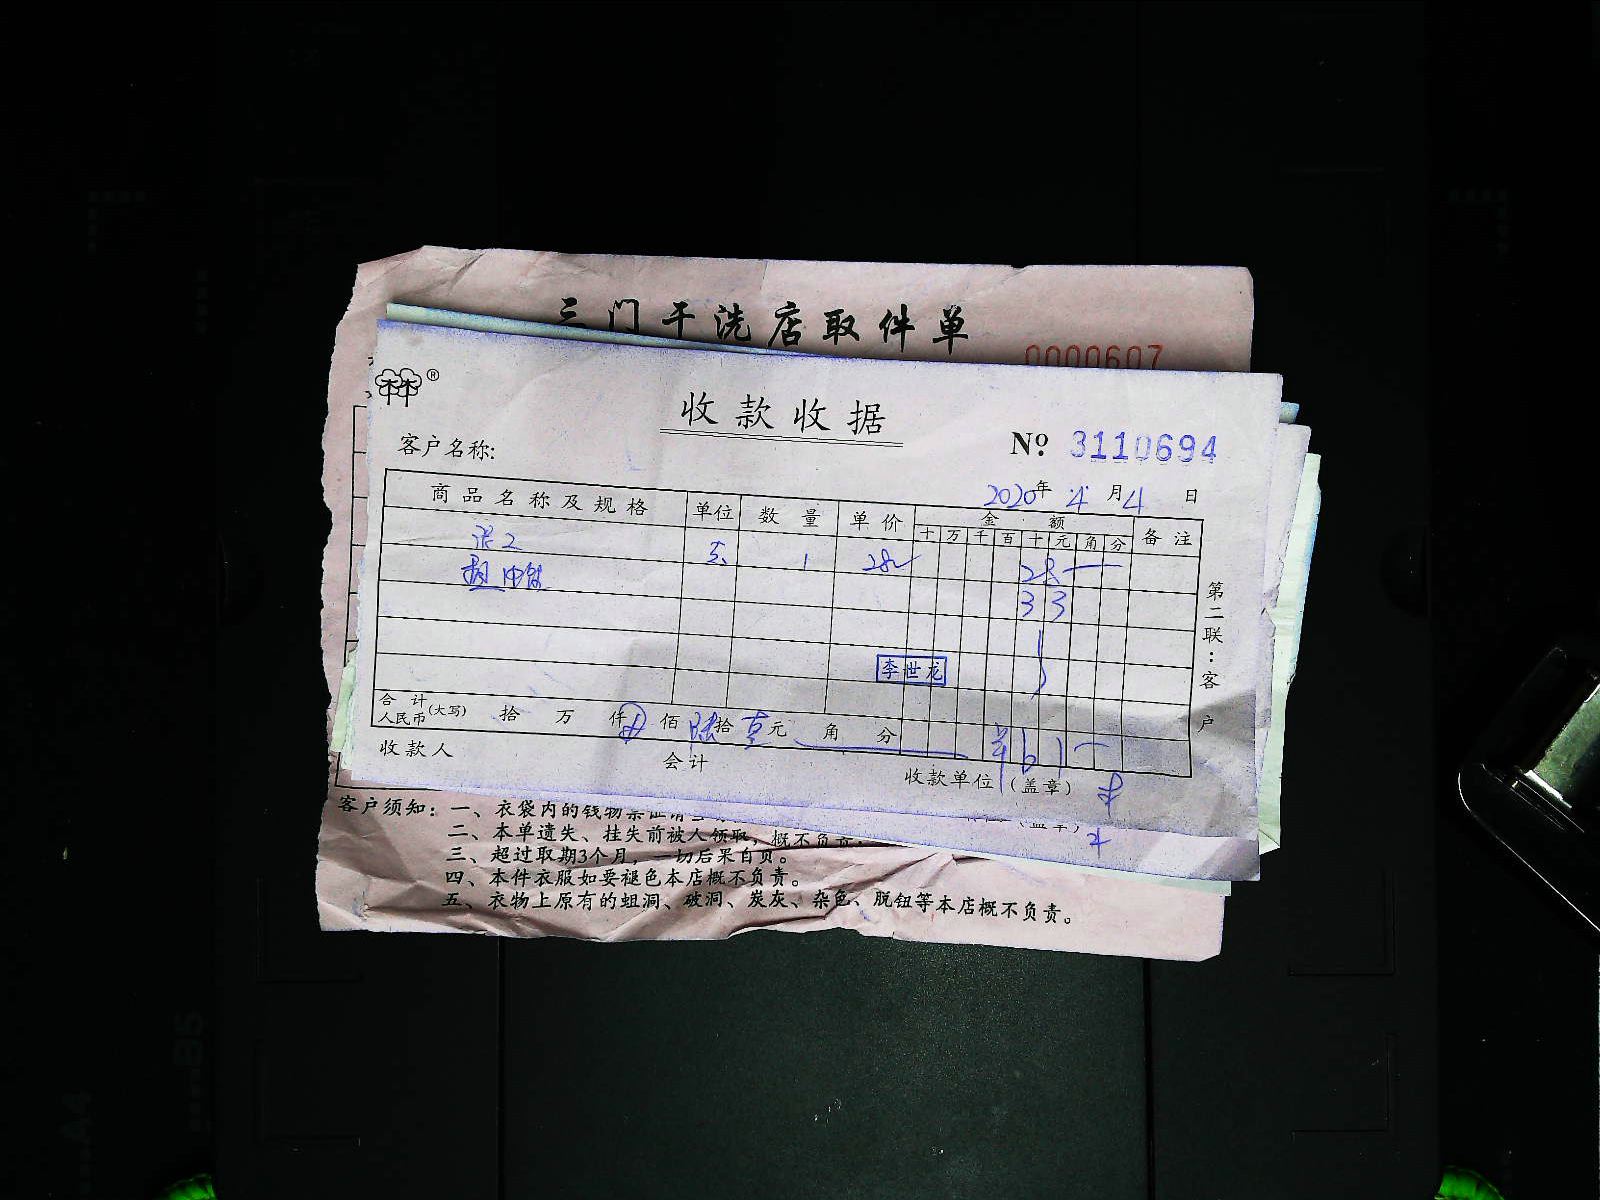 三门干洗店取件单
0000607
®
收款收据
客户名称:
Nº 3110694
2020年4月4日
商品名称及规格 单位 数量 单价 金额 备注
十 万 千 百 十 元 角 分
1 28 28
33
李世龙
第二联:客户
合计人民币(大写) 拾 万 仟 佰 陆拾 壹元 角 分 61
收款人 会计 收款单位(盖章)
(盖章)
客户须知:一、衣袋内的钱物票证请
二、本单遗失、挂失前被人领取,概不负责.
三、超过取期3个月,一切后果自负。
四、本件衣服如要褪色本店概不负责。
五、衣物上原有的蛆洞、破洞、炭灰、杂色、脱钮等本店概不负责。
B5
A4